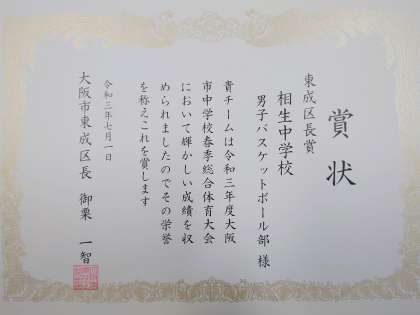 賞状
東成区長賞
相生中学校
男子バスケットボール部 様
貴チームは令和三年度大阪
市中学校春季総合体育大会
において輝かしい成績を収
められましたのでその栄誉
を称えこれを賞します
令和三年七月一日
大阪市東成区長 御栗 一智